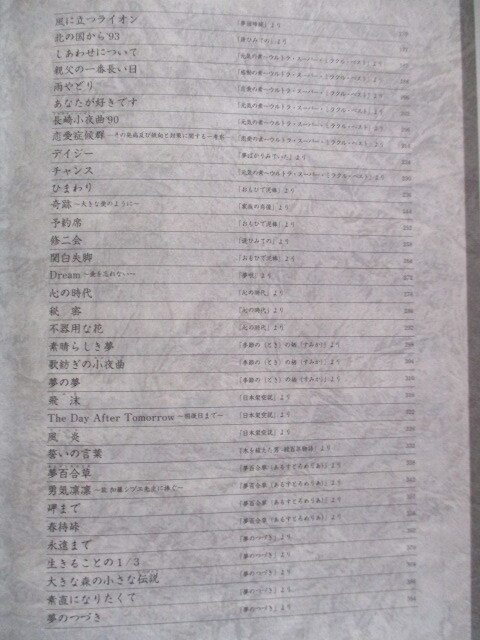 風に立つライオン 『夢回帰線』より
北の国から'93 『逢ひみての』より 176
しあわせについて 『元気の素〜ウルトラ・スーパー・ミラクル・ベスト』より
親父の一番長い日 『元気の素〜ウルトラ・スーパー・ミラクル・ベスト』より
雨やどり 『元気の素〜ウルトラ・スーパー・ミラクル・ベスト』より
あなたが好きです 『元気の素〜ウルトラ・スーパー・ミラクル・ベスト』より
長崎小夜曲'90 『元気の素〜ウルトラ・スーパー・ミラクル・ベスト』より
恋愛症候群 〜その発病及び経過と対策に関する一考察〜 『元気の素〜ウルトラ・スーパー・ミラクル・ベスト』より
デイジー 『夢ばかりみていた』より
チャンス 『元気の素〜ウルトラ・スーパー・ミラクル・ベスト』より
ひまわり 『おもひで泥棒』より
奇跡 〜大きな愛のように〜 『家族の肖像』より
予約席 『おもひで泥棒』より
修二会 『逢ひみての』より 252
関白失脚 『おもひで泥棒』より
Dream 〜愛を忘れない〜 『夢唄』より 272
心の時代 『心の時代』より 278
秘 密 『心の時代』より
不器用な花 『心の時代』より 292
素晴らしき夢 『季節の(とき)の栖(すみか)』より 298
歌紡ぎの小夜曲 『季節の(とき)の栖(すみか)』より
夢の夢 『季節の(とき)の栖(すみか)』より
飛 泳 『日本架空説』より
The Day After Tomorrow 〜明後日まで〜 『日本架空説』より
風 炎 『日本架空説』より
誓いの言葉 より
夢百合草 『夢百合草(あるすとろめりあ)』より
勇気凛凛 〜故 加藤シヅエ先生に捧ぐ〜 『夢百合草(あるすとろめりあ)』より
岬まで 『夢百合草(あるすとろめりあ)』より
春待峠 『夢百合草(あるすとろめりあ)』より
永遠まで 『夢のつづき』より
生きることの1/3 『夢のつづき』より
大きな森の小さな伝説 『夢のつづき』より
素直になりたくて 『夢のつづき』より
夢のつづき 『夢のつづき』より